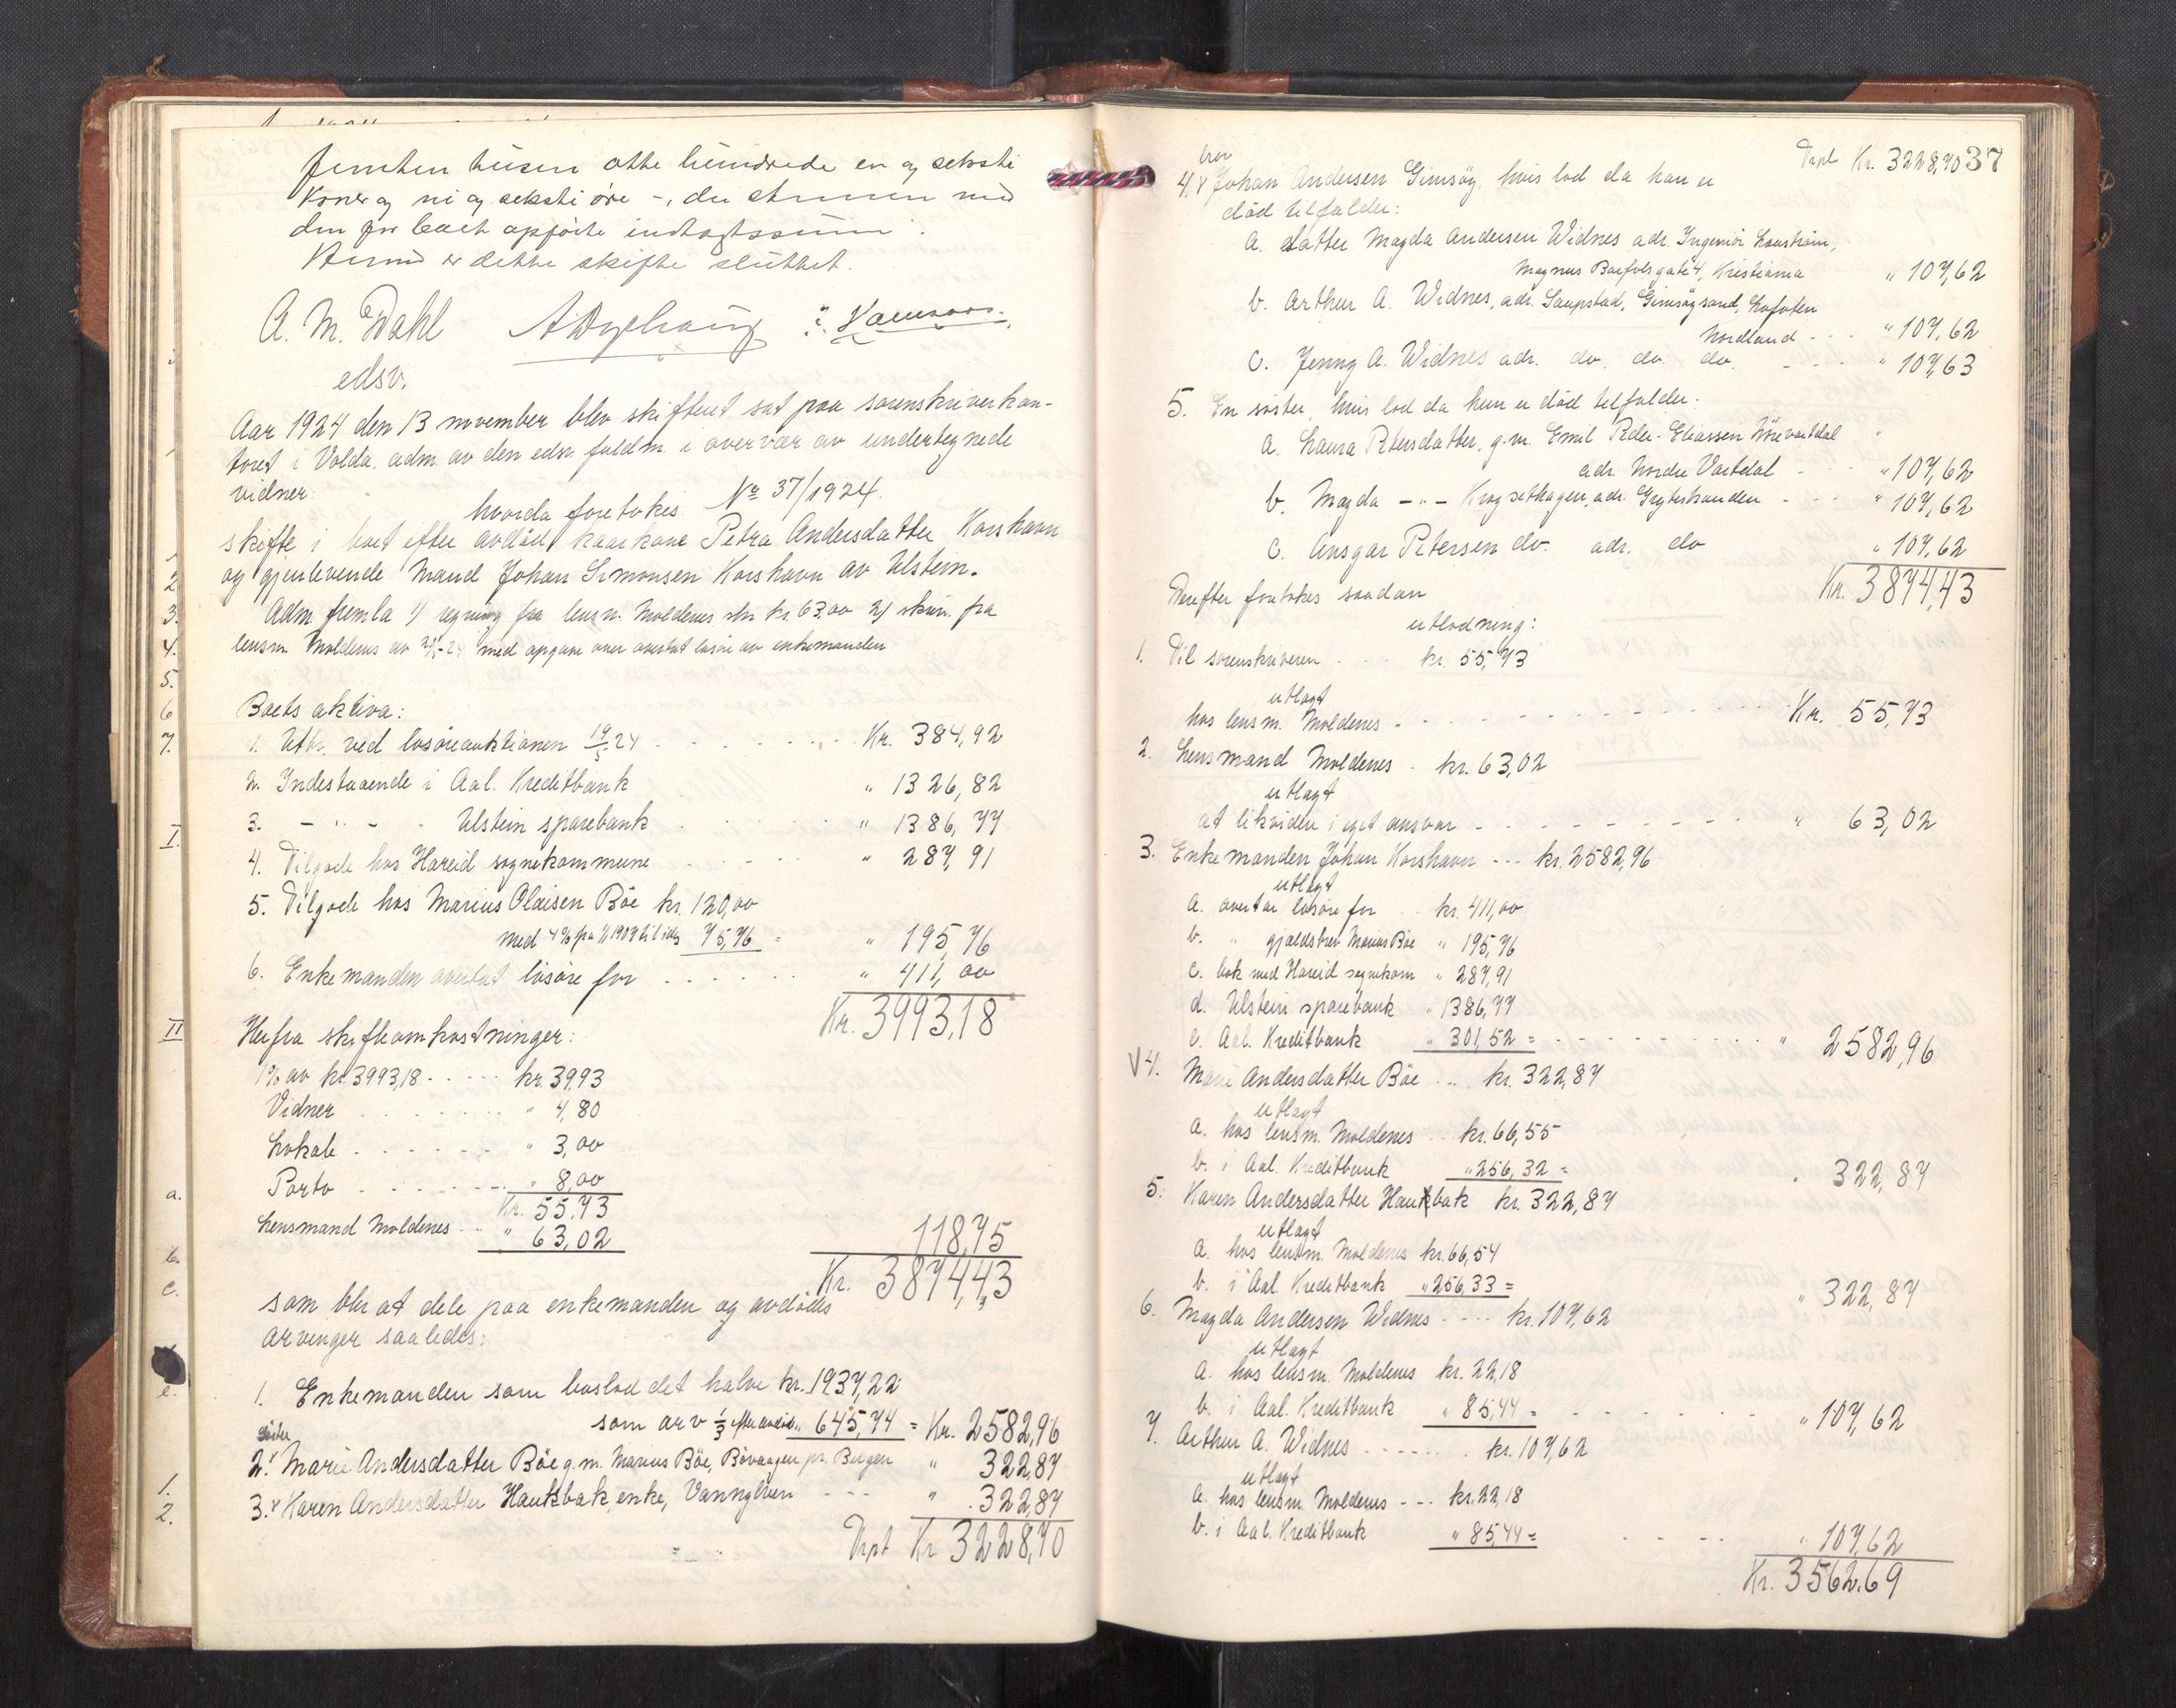 femten tusen otte hundrede en og seksti
kroner og ni og seksti øre -, der stemmer med
den for boet opførte indtægtssum.
Hermed er dette skifte sluttet.
A. M. Dahl
edsv.
Aar 1924 den 13 november blev skifteret sat paa sorenskriverkon-
toret i Volda, adm. av den edsv. fuldm. i overvær av undertegnede
vidner.
hvorda foretokes No 37/1924.
skifte i boet efter avdød kaarkone Petra Andersdatter Korshavn
og gjenlevende mand Johan Simonsen Korshavn av Ulstein.
Adm fremla 1) regning fra lensm. Moldenes stor kr. 63.00 2) skriv. fra
lensm Moldenes av med opgave over overtat løsøre av enkemanden
Boets aktiva:
1. Utbr. ved løsøreauktionen 19/5 24 Kr. 384,92
2. Indestaaende i Aal. Kreditbank " 1326,82
3. - " - Ulstein sparebank " 1386,77
4. Tilgode hos Hareid sognekommune " 287,91
5. Tilgode hos Marius Olaisen Böe kr. 120,00
med 4% fra 1/1 1909 til ids 75,76 = " 195,76
6. Enkemanden overtat løsøre for " 411,00
Kr. 3993,18
Herfra skifteomkostninger:
1% av kr. 3993,18 kr. 39,93
Vidner " 4,80
Lokale " 3,00
Porto " 8,00
Kr. 55,73
Lensmand Moldenes " 63,02
118,75
Kr. 3874,43
som blir at dele paa enkemanden og avdødes
arvinger saaledes:
1. Enkemanden som boslod det halve kr. 1937,22
som arv 1/3 efter avdøde " 645,74 = Kr. 2582,96
søster
2. Marie Andersdatter Böe g.m. Marius Böe, Bövaagen pr. Bergen " 322,87
3. Karen Andersdatter Hautbak, enke, Vannylven " 322,87
Trpt Kr 3228,70
Trpt Kr. 3228,70 37
bror
4. Johan Andersen Gimsöy, hvis lod da han er
död tilfalder:
a. datter Magda Andersen Widnes adr. Ingeniør
Magnus Barfotsgate 4, Kristiania " 107,62
b. Arthur A. Widnes, adr. Saupstad, Gimsöysand, Lofoten
Nordland " 107,62
c. Jenny A. Widnes adr. do. do. do. " 107,63
5. En søster, hvis lod da hun er död tilfalder:
a. Laura Petersdatter, g.m. Emil Peder-Eliassen Nörevartdal
adr. Nordre Vartdal " 107,62
b. Magda - " - Krogsethagen, adr. Gryteskanden " 107,62
c. Ansgar Petersen do. adr. do " 107,62
Kr. 3874,43
Derefter foretokes saadan
utlodning:
1. Til sorenskriveren kr. 55,73
utlagt
hos lensm. Moldenes Kr. 55,73
2. Lensmand Moldenes kr. 63,02
utlagt
at likvidere i eget ansvar " 63,02
3. Enkemanden Johan Korshavn kr. 2582,96
utlagt
a. overtar løsøre for kr. 411,00
b. " gjældsbrev Marius Böe " 195,76
c. bok med Hareid sognekom " 287,91
d. Ulstein sparebank " 1386,77
e. Aal. Kreditbank " 301,52 = " 2582,96
V 4. Marie Andersdatter Böe kr. 322,87
utlagt
a. hos lensm. Moldenes kr. 66,55
b. i Aal. Kreditbank " 256,32 = " 322,87
5. Karen Andersdatter Hautbak kr. 322,87
utlagt
a. hos lensm. Moldenes kr. 66,54
b. i Aal. Kreditbank " 256,33 = " 322,87
6. Magda Andersen Widnes kr. 107,62
utlagt
a. hos lensm. Moldenes kr. 22,18
b. i Aal. Kreditbank " 85,44 = " 107,62
7. Arthur A. Widnes kr. 107,62
utlagt
a. hos lensm. Moldenes kr. 22,18
b. i Aal. Kreditbank " 85,44 = " 107,62
Kr. 3562,69